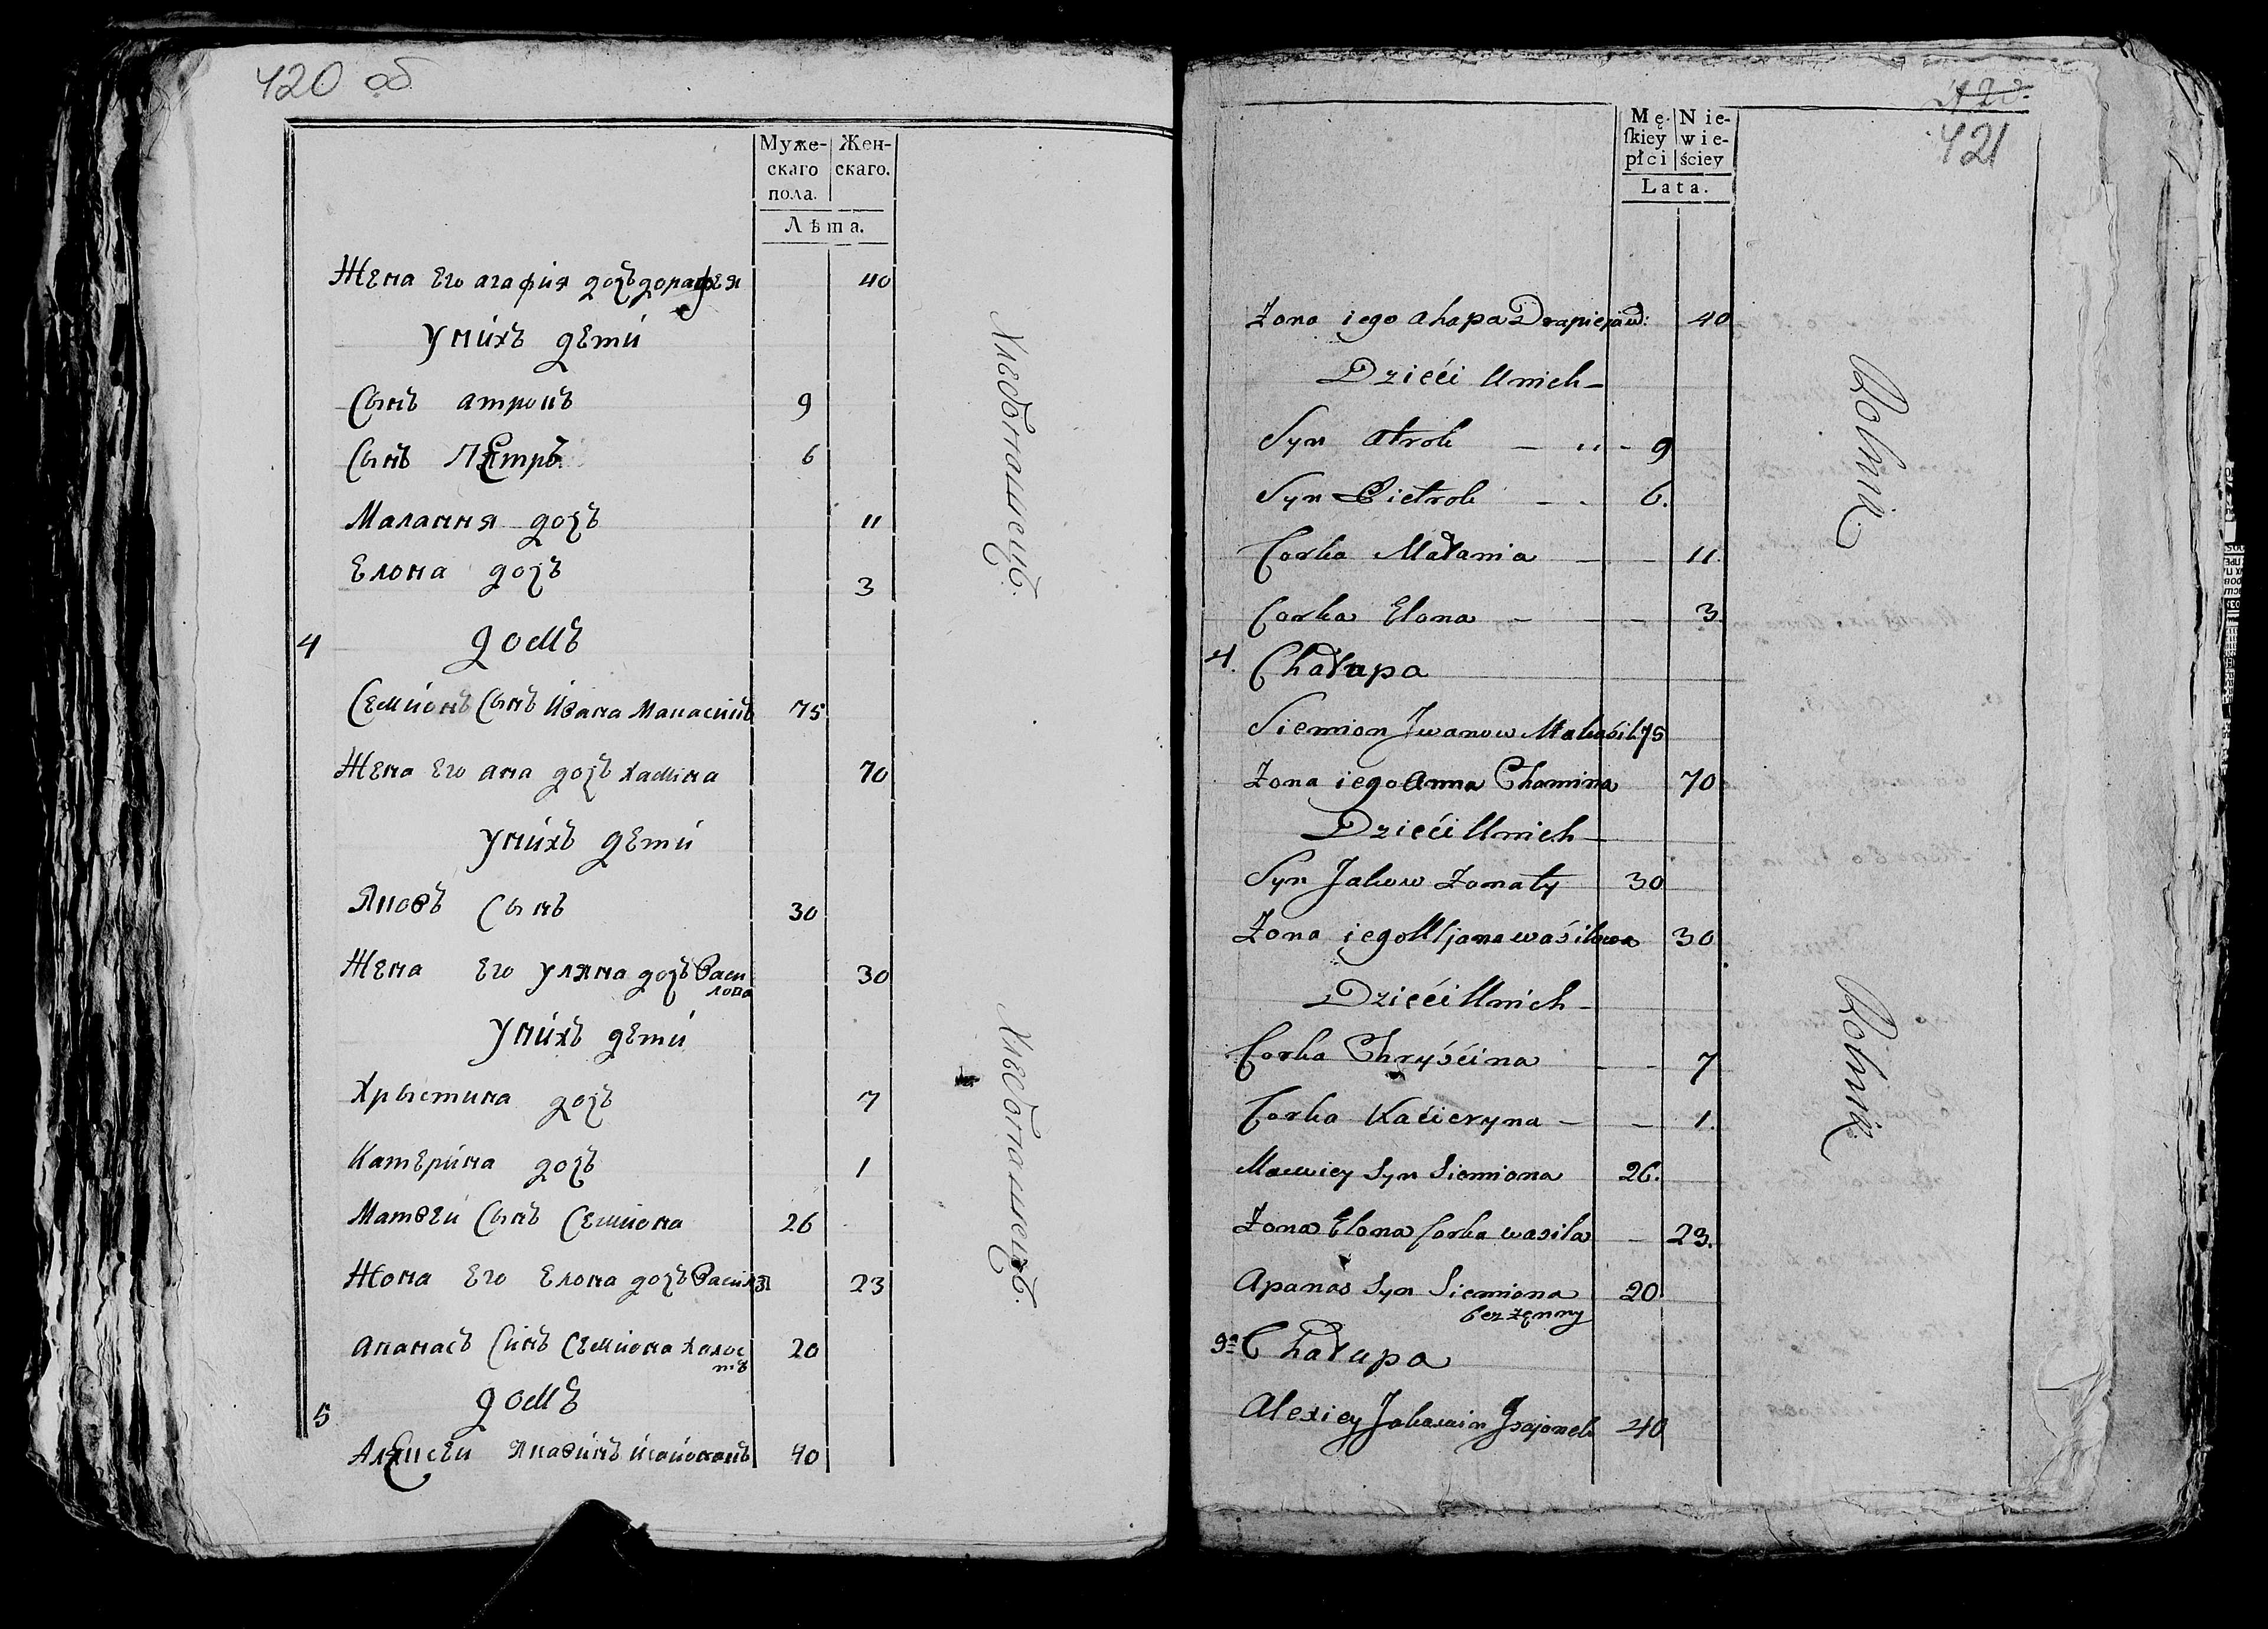 420 об
Муже-
скаго
пола.
Жен-
скаго.
Лѣта.
Жена Его агафия доӡъ дорафея 40
Унихъ дети
Сынъ атрохъ 9
Сынъ Петръ 6
Малання доӡъ 11
Елона доӡъ 3
4 домъ
Семионъ Сынъ Ивана Макасикъ 75
Жена Его ана доӡъ хамина 70
Унихъ дети
Яковъ Сынъ 30
Жена Его Уляна доӡъ Васи
лова 30
Унихъ дети
Хрыстина доӡъ 7
Катерина доӡъ 1
Матвеи Сынъ Семиона 26
Жона Его Елона доӡъ Василя 23
апанасъ Синъ Семиона холос
тъ 20
5 домъ
Алексеи Яковинъ Исаионокъ 40
Хлебопашецъ.
Хлебопашецъ.
420.
421
Mę-
ſkiey
płci
Nie-
wie-
ściey
Lata.
Zona iego ahapa 40
Dzieći Unich
Syn atroh 9
Syn Pietroh 6.
Corka Małania 11.
Corka Elona 3
4. Chałupa
Siemion Iwanow 75
Zona iego Anna Chamina 70
Dzieći Unich
Syn Jakow Zonaty 30
Zona iego Uljana waśilowa 30
Dzieći Unich
Corka Chryśćina 7
Corka Kaćieryna 1.
Maćwiey Syn Siemiona 26.
Zona Elona Corka wasila 23.
Apanas Syn Siemiona 20
bezżęnny
Chałupa
Alexiey Jakowin Jsajonek 40
Rolnik
Rolnik